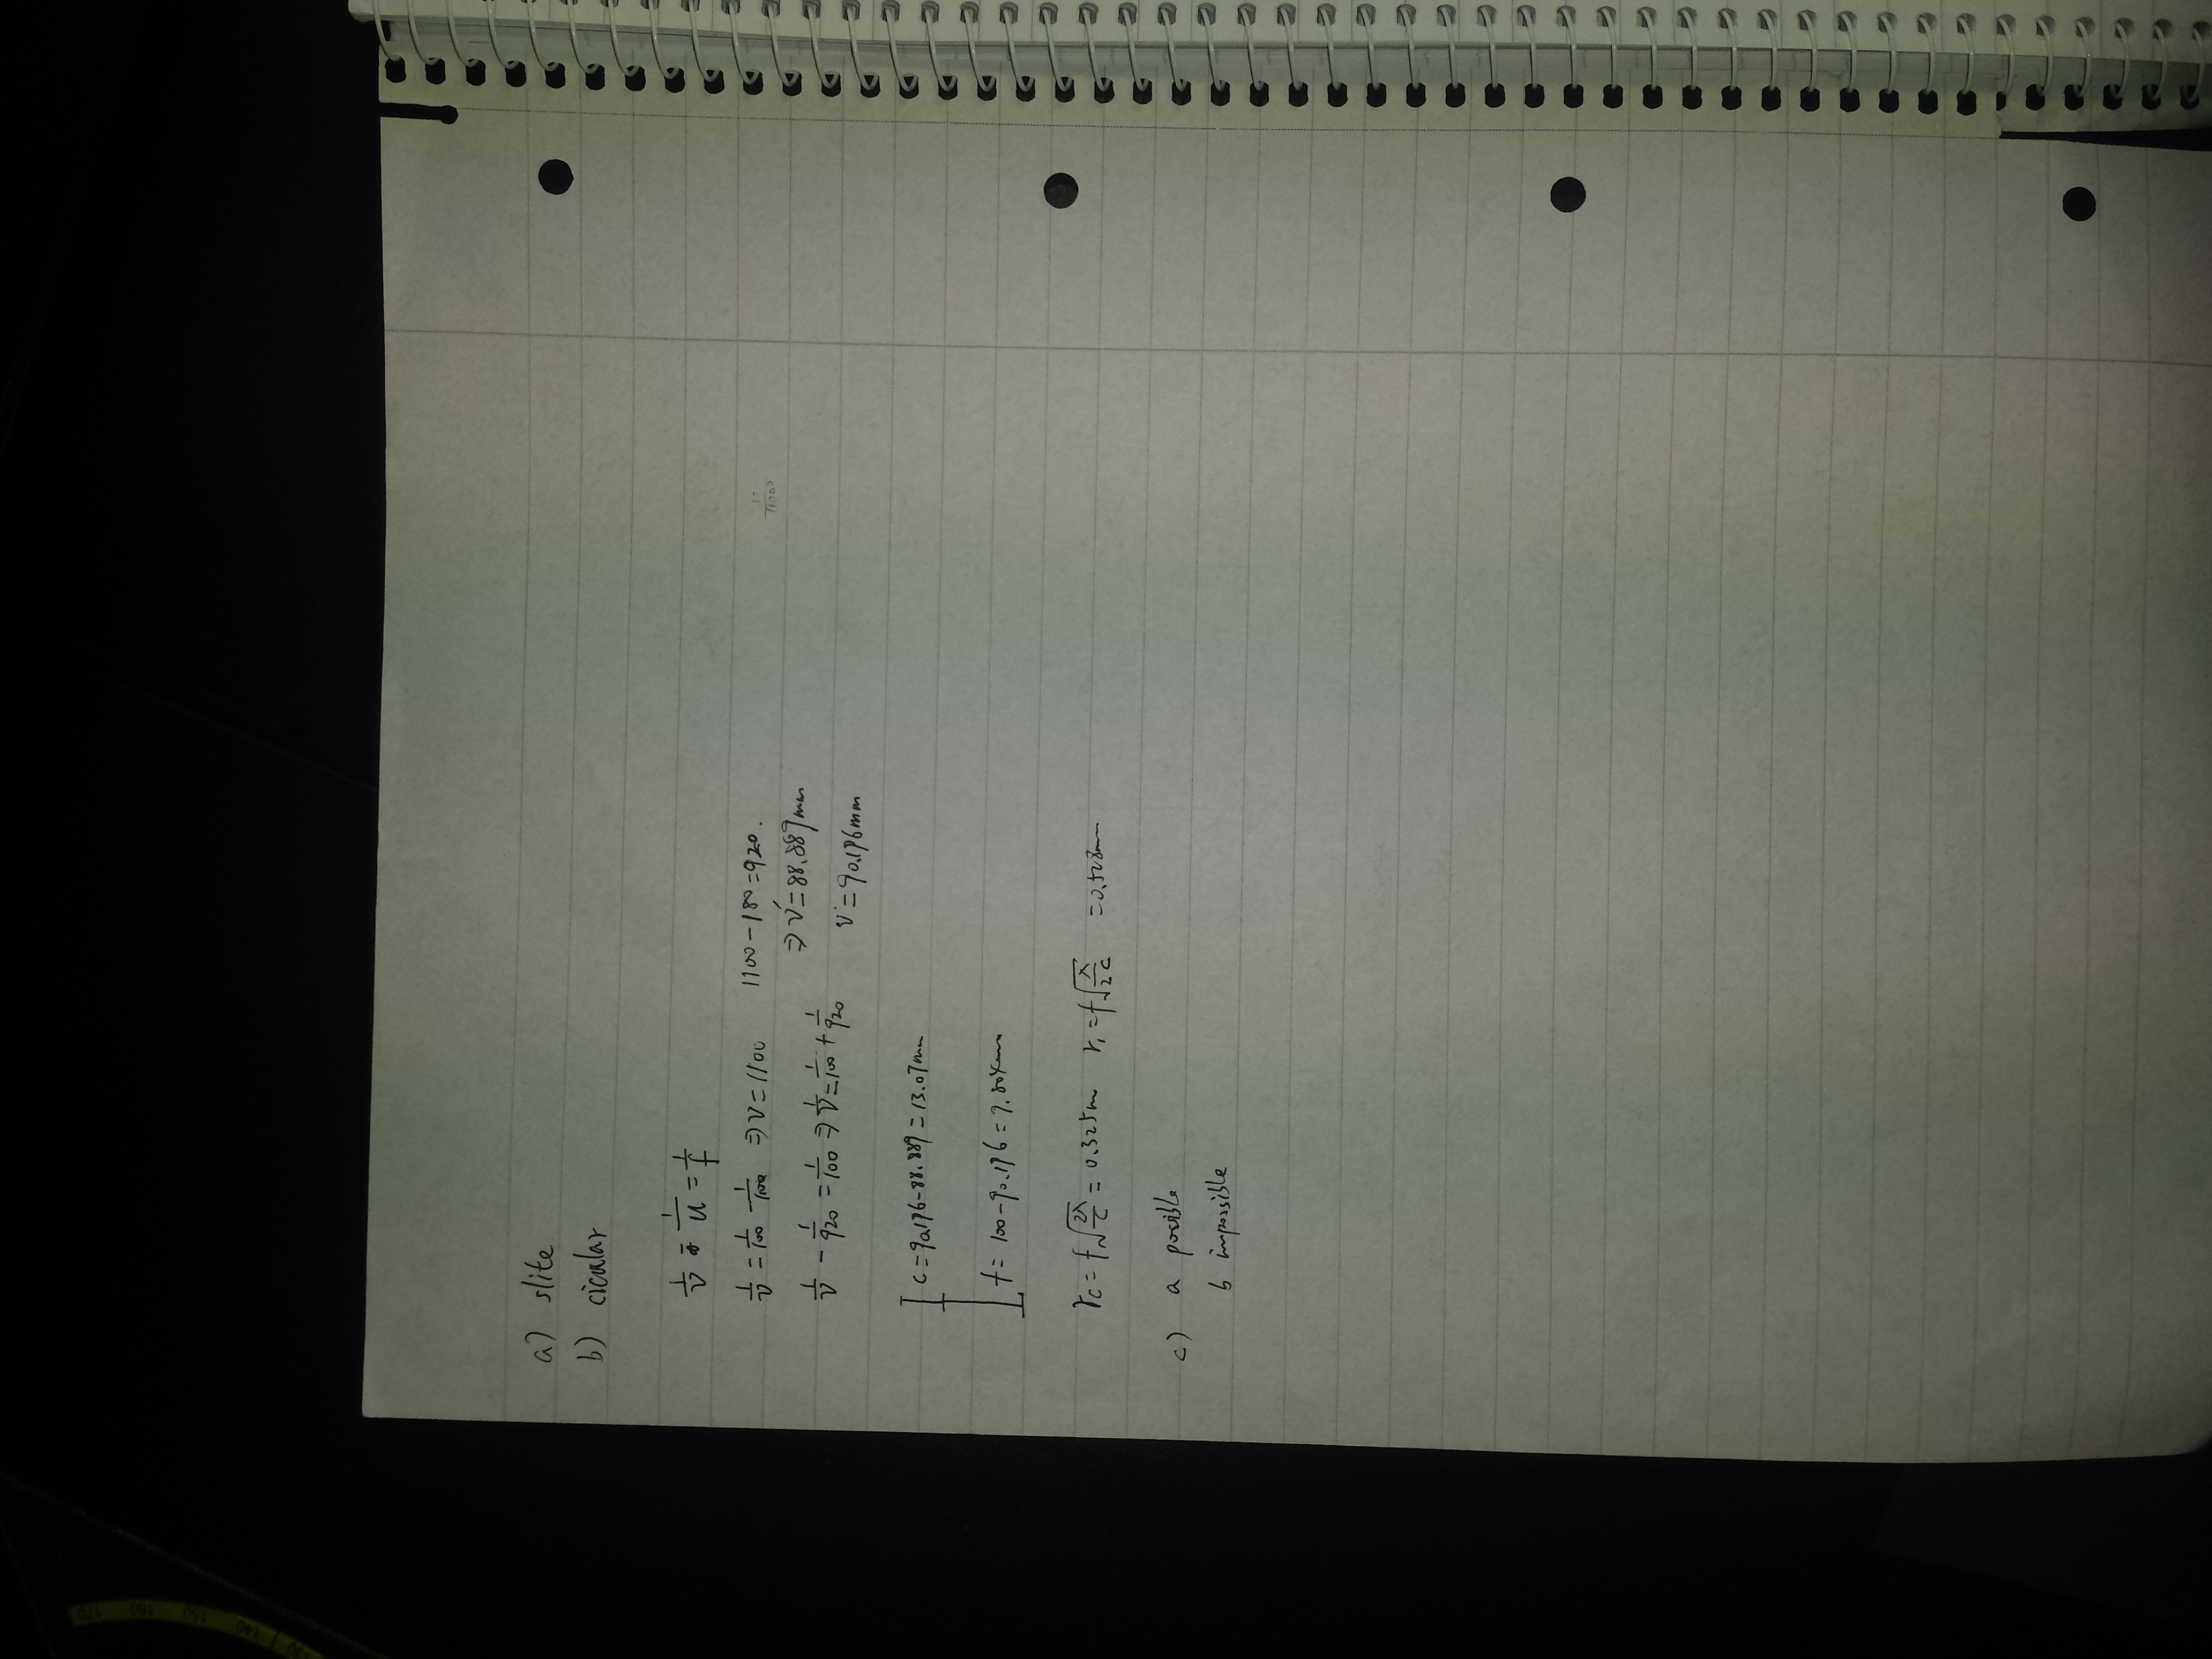 a) slite
b) cicular
1/v = 1/u = 1/f
1/v = 1/100 - 1/1100 ⇒ v = 1100 1100 - 180 = 920.
1/v - 1/920 = 1/100 ⇒ 1/v = 1/100 + 1/920 ⇒ v' = 88.889mm
v' = 90.196mm
c = 90.196 - 88.889 = 13.07mm
f = 100 - 90.196 = 9.804mm
rc = f√(2λ/c) = 0.325m r₁ = f√(λ/2c) = 0.528mm
c) a possible
b impossible
170 160 150 140